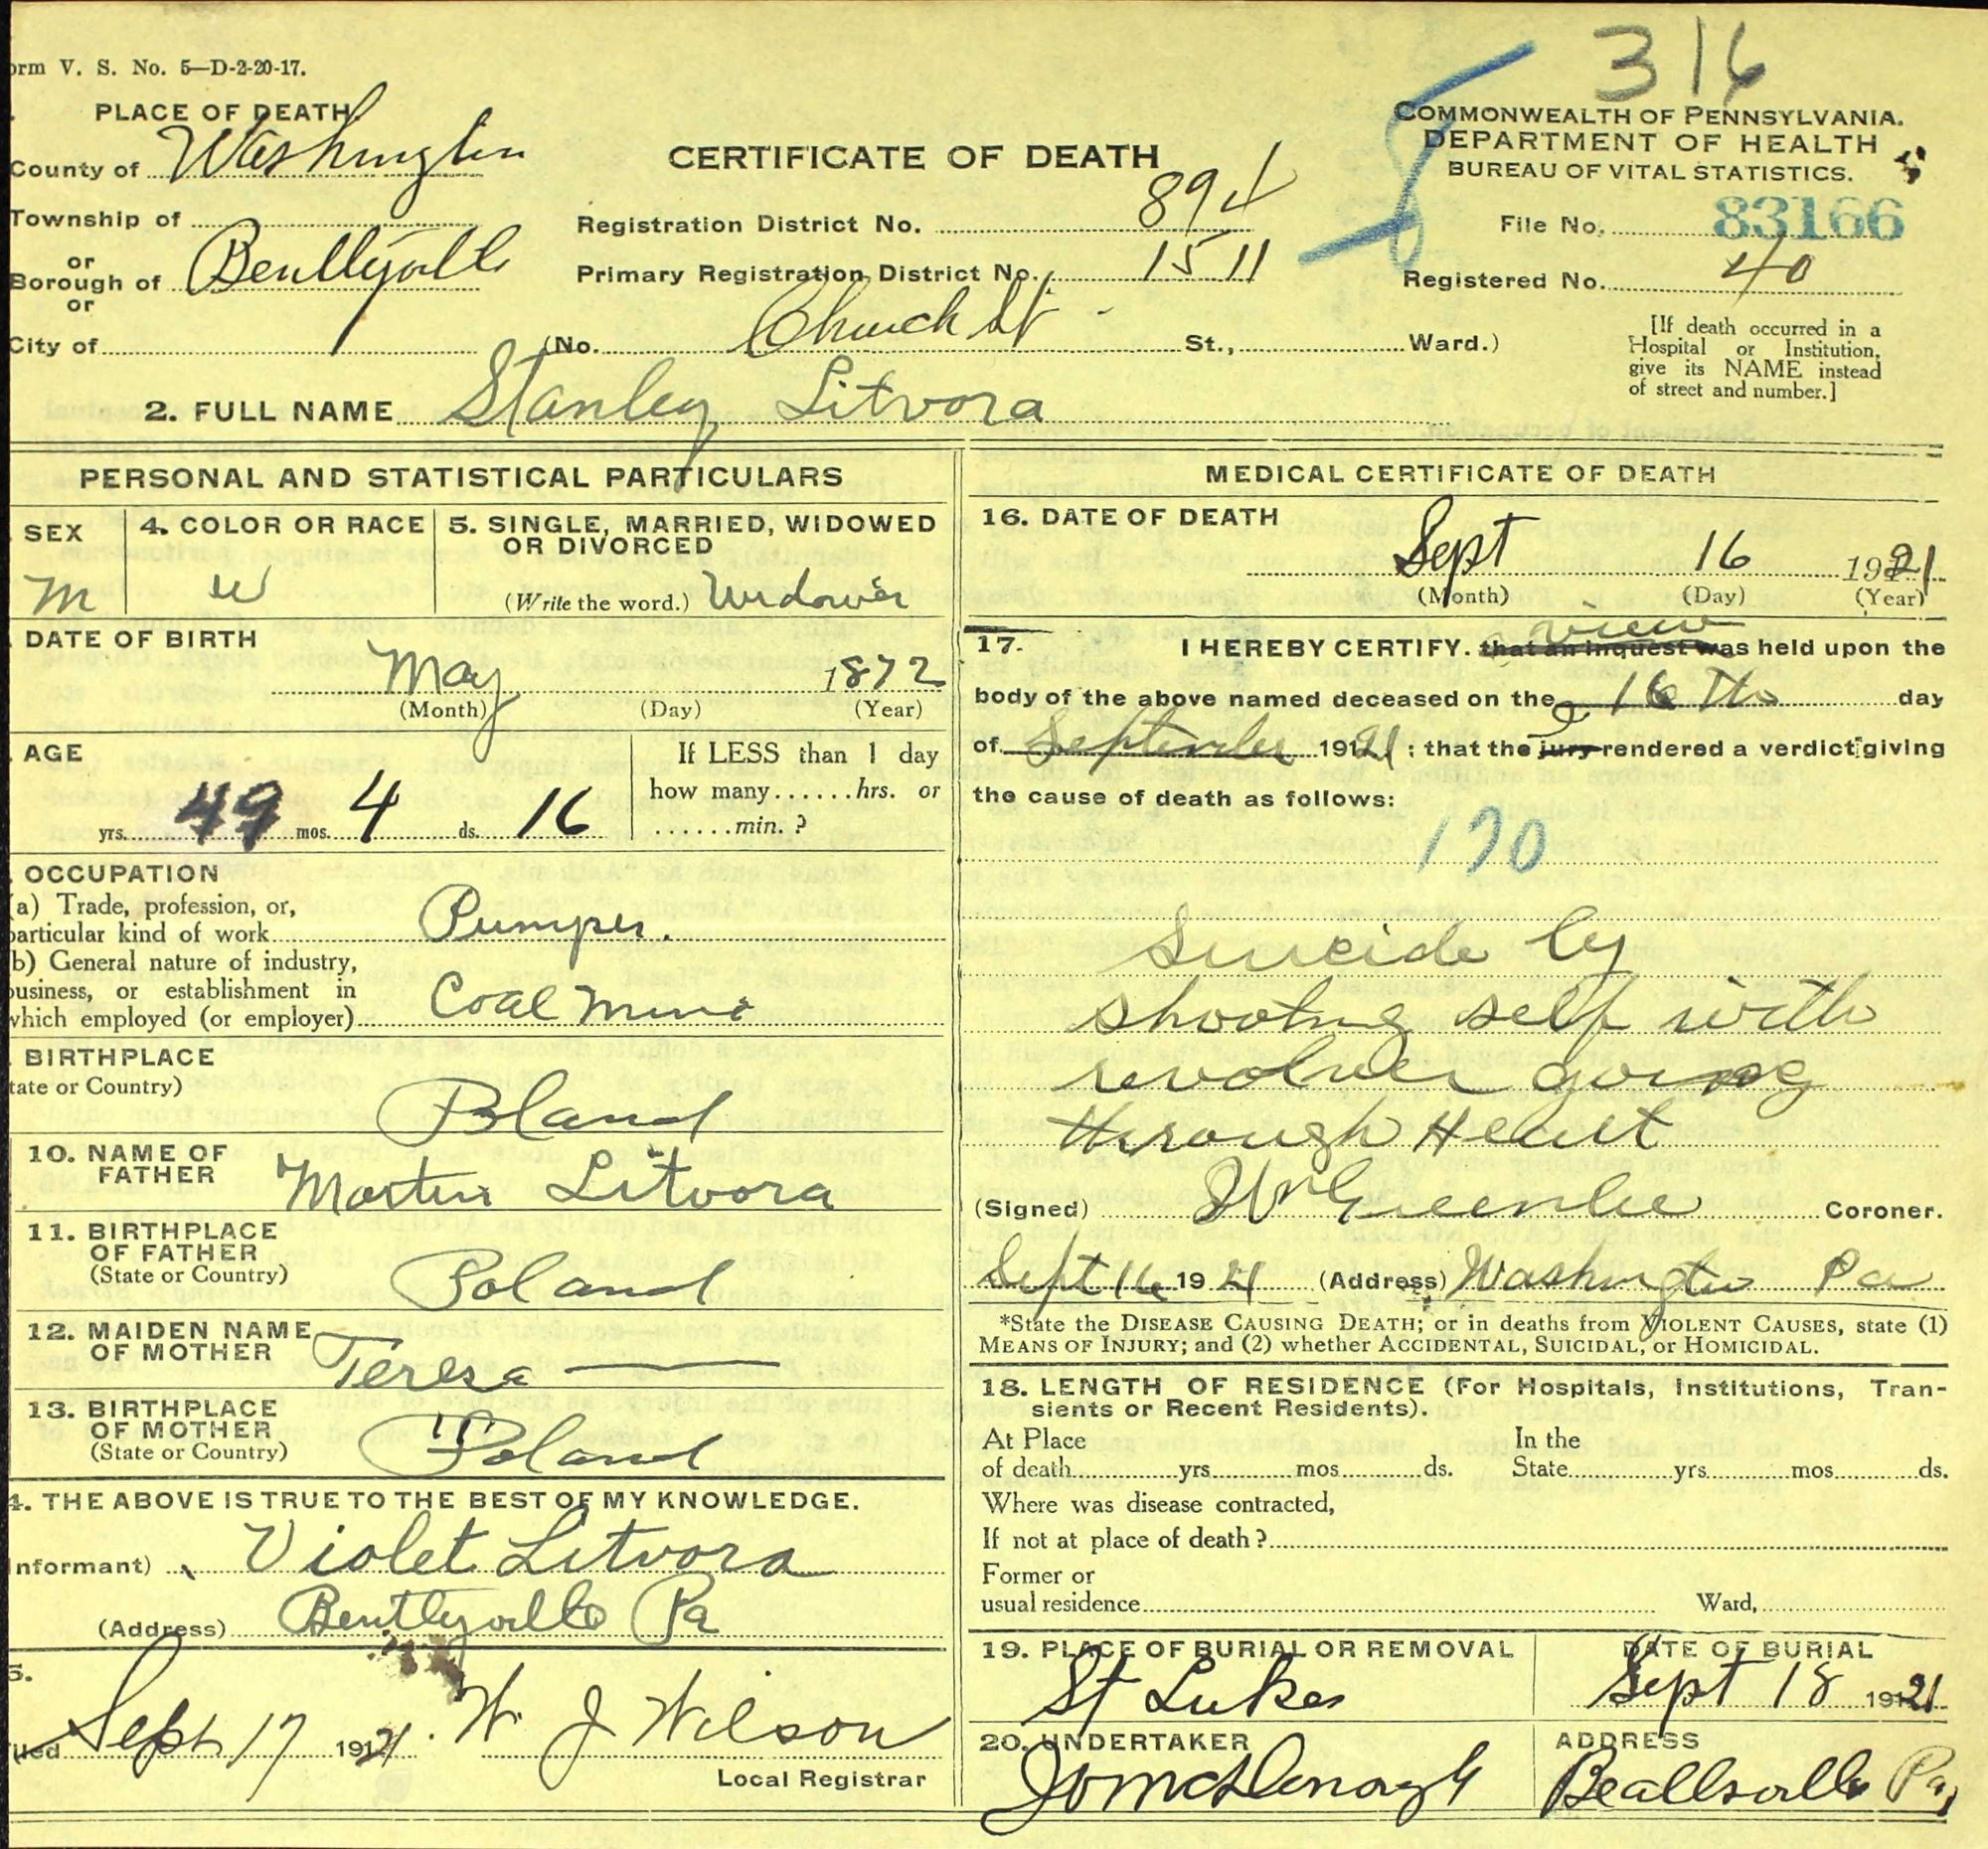 316
orm V. S. No. 5—D-2-20-17.
PLACE OF DEATH
County of Washington
Township of
or
Borough of Bentleyville
or
City of
CERTIFICATE OF DEATH
Registration District No. 894
Primary Registration District No. 1511
(No. Church St St., Ward.)
COMMONWEALTH OF PENNSYLVANIA.
DEPARTMENT OF HEALTH
BUREAU OF VITAL STATISTICS.
File No. 83166
Registered No. 40
[If death occurred in a
Hospital or Institution,
give its NAME instead
of street and number.]
2. FULL NAME Stanley Litvora
PERSONAL AND STATISTICAL PARTICULARS
SEX
M
4. COLOR OR RACE
W
5. SINGLE, MARRIED, WIDOWED
OR DIVORCED
(Write the word.) Widower
DATE OF BIRTH
May 1872
(Month) (Day) (Year)
AGE
49 yrs. 4 mos. 16 ds.
If LESS than 1 day
how many......hrs. or
......min. ?
OCCUPATION
(a) Trade, profession, or,
particular kind of work Pumper.
b) General nature of industry,
business, or establishment in
which employed (or employer) Coal Mine
BIRTHPLACE
tate or Country)
Poland
10. NAME OF
FATHER Martin Litvora
11. BIRTHPLACE
OF FATHER
(State or Country) Poland
12. MAIDEN NAME
OF MOTHER Teresa —
13. BIRTHPLACE
OF MOTHER
(State or Country) Poland
4. THE ABOVE IS TRUE TO THE BEST OF MY KNOWLEDGE.
nformant) Violet Litvora
(Address) Bentleyville Pa
5.
iled Sept 17 1921. W. J Wilson
Local Registrar
MEDICAL CERTIFICATE OF DEATH
16. DATE OF DEATH
Sept 16 1921
(Month) (Day) (Year)
view
17. I HEREBY CERTIFY. that an inquest was held upon the
body of the above named deceased on the 16 Th day
of September 1921 : that the jury I rendered a verdict giving
the cause of death as follows:
170
Suicide by
shooting self with
revolver going
through Heart
(Signed) W Greenlee Coroner.
Sept 16 1921 (Address) Washington Pa
*State the DISEASE CAUSING DEATH; or in deaths from VIOLENT CAUSES, state (1)
MEANS OF INJURY; and (2) whether ACCIDENTAL, SUICIDAL, or HOMICIDAL.
18. LENGTH OF RESIDENCE (For Hospitals, Institutions, Tran-
sients or Recent Residents).
At Place In the
of death yrs. mos. ds. State yrs. mos. ds.
Where was disease contracted,
If not at place of death ?
Former or
usual residence Ward,
19. PLACE OF BURIAL OR REMOVAL
St Lukes
DATE OF BURIAL
Sept 18 1921
20. UNDERTAKER
ADDRESS
Beallsville Pa,